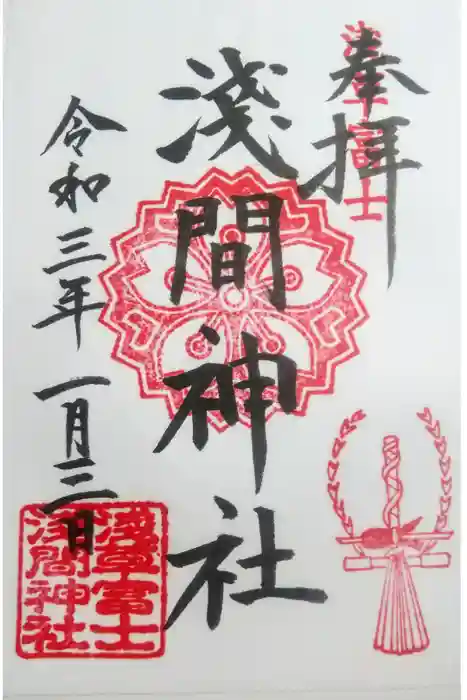 奉拝
浅草富士
淺間神社
令和三年一月三日
浅草富士
浅間神社